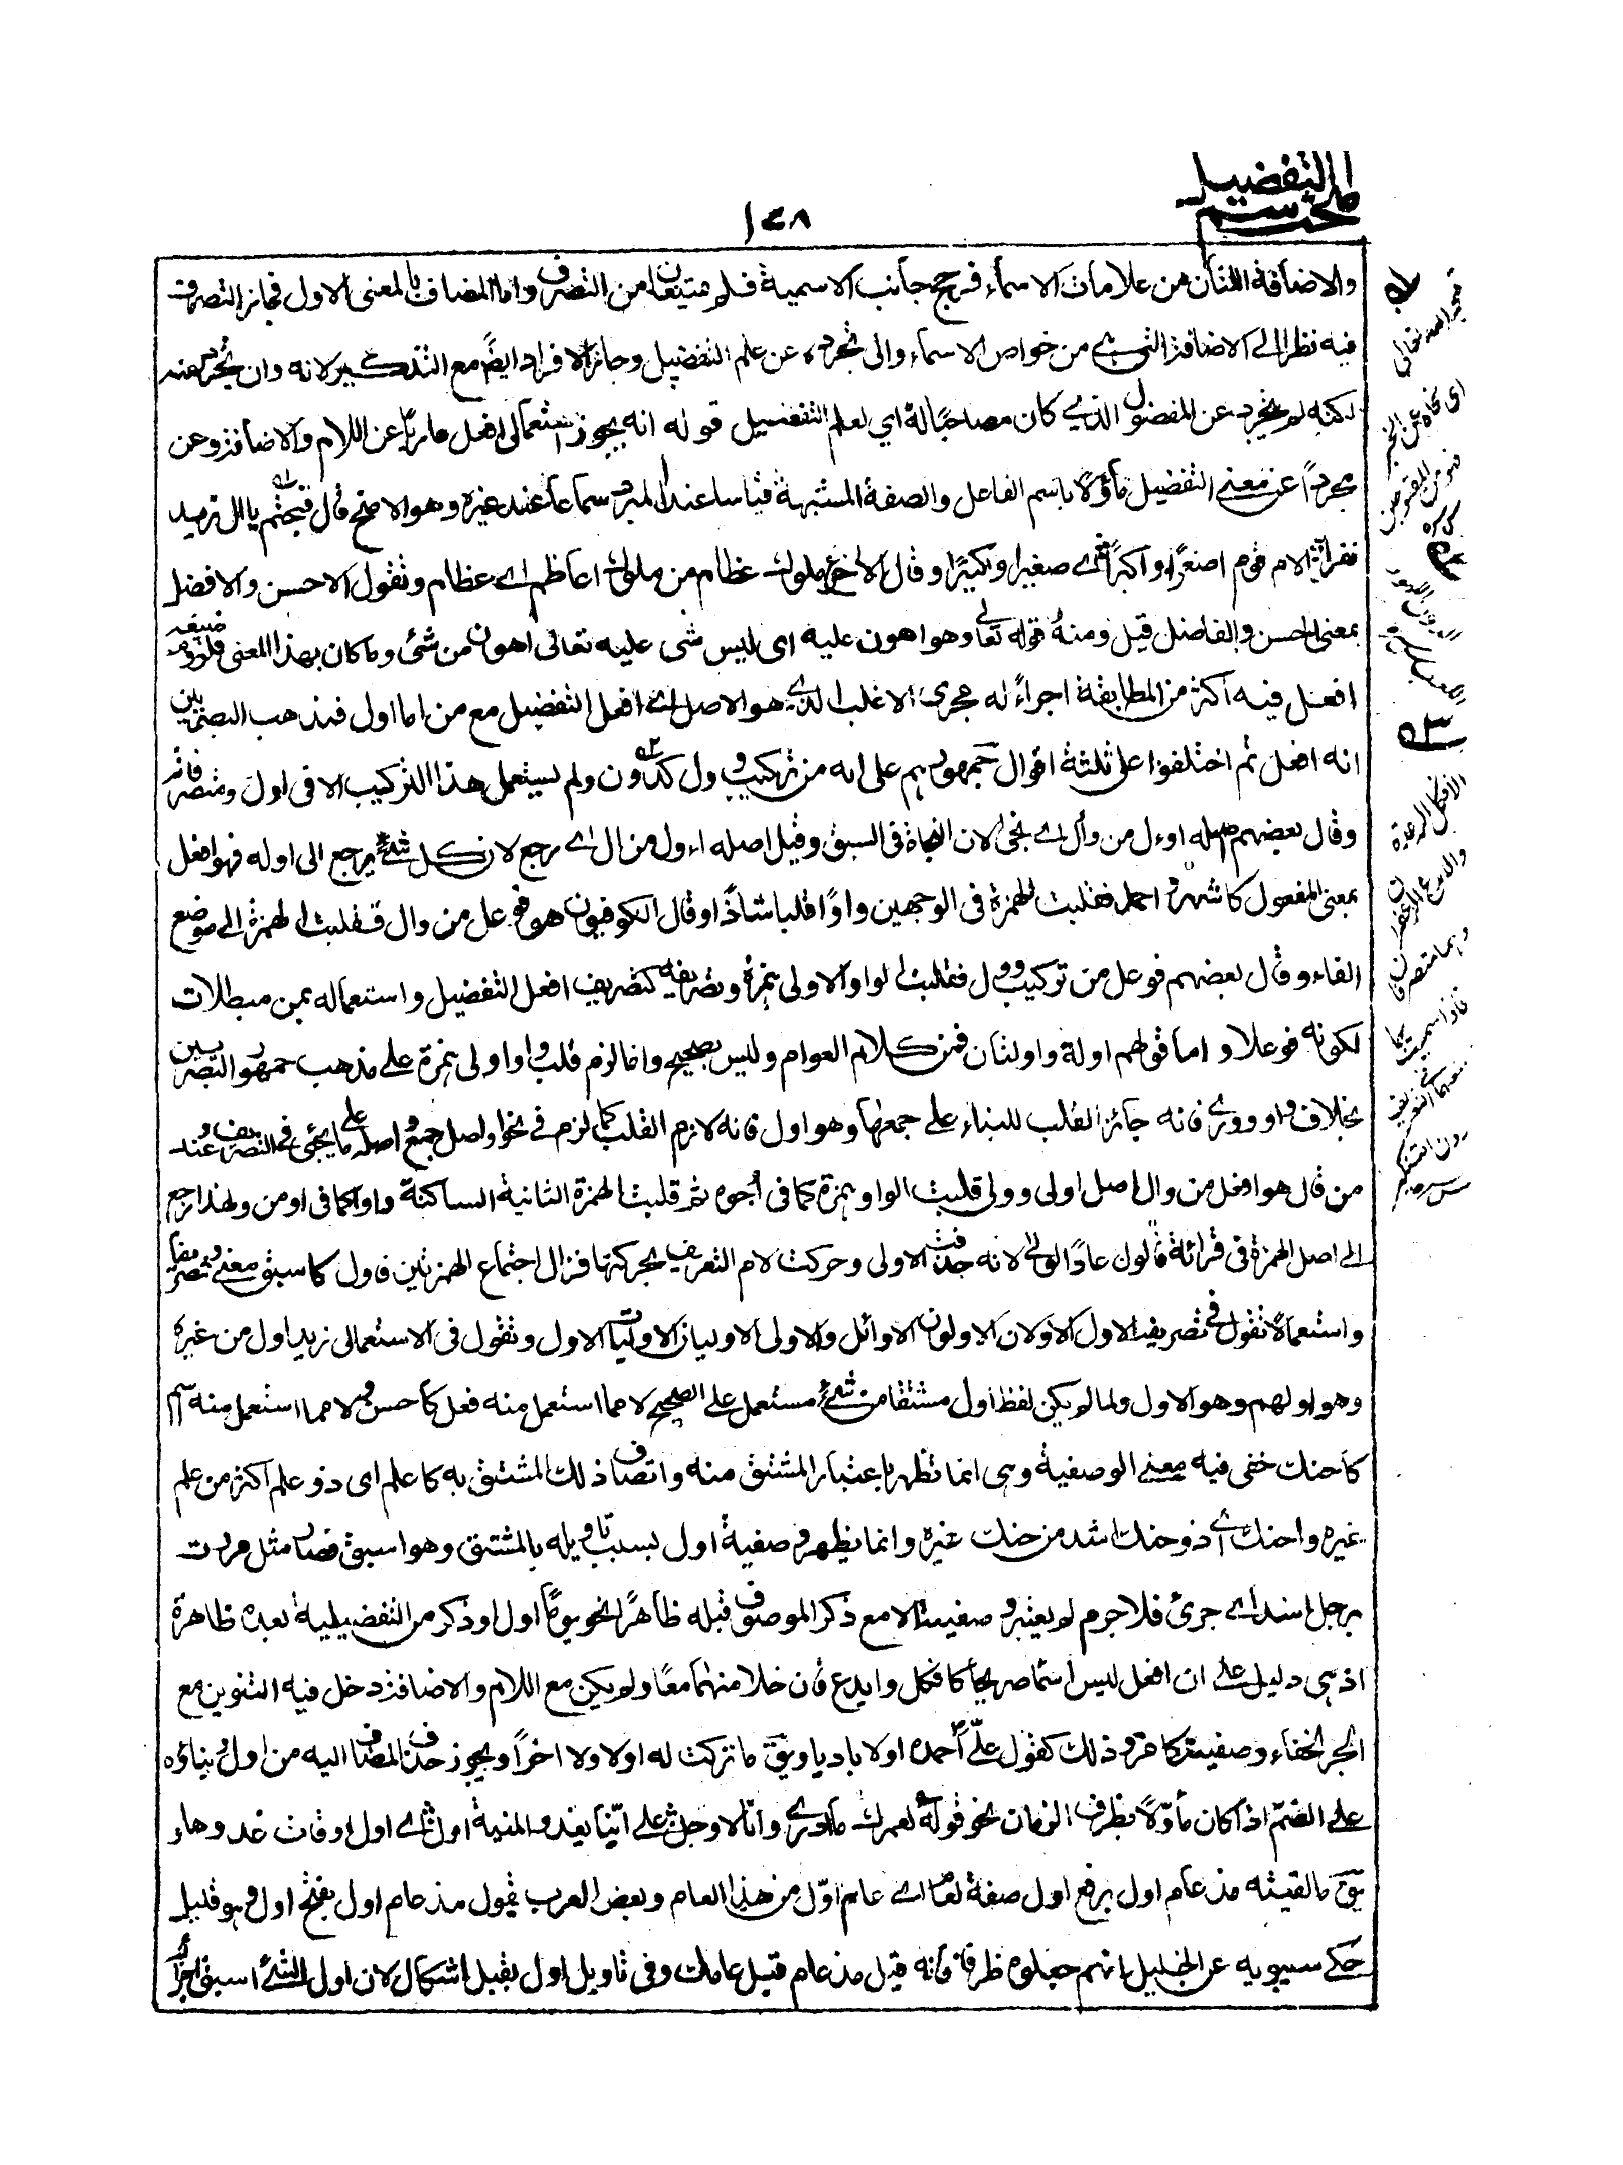 بحث اسم التفضيل
١٤٨
والاضافة اللتان من علامات الاسماء فرجح جانب الاسمية فلم يمتنعا من التصرف واما المضاف بالمعنى الاول فجاز التصرف
فيه نظرا الى الاضافة التى هى من خواص الاسماء والى تجرده عن علم التفضيل وجاز الافراد ايضًا مع التذكير لانه وان تجرد عنه
لكنه لم يتجرد عن المفضول الذى كان مصاحبًا له اي لعلم التفضيل قوله انه يجوز استعمال افعل عاريًا عن اللام والاضافة ومن
مجردًا عن معنى التفضيل مأوّلا باسم الفاعل والصفة المشبهة قياسا عند المبرد سماعًا عند غيره وهو الاصح قال قبحتم يا ال زيد
نفرا الام قوم اصغرًا واكبرًا اى صغيرا وكبيرًا وقال الاخر ملوك عظام من ملوك اعاظم اى عظام وتقول الاحسن والافضل
بمعنى الحسن والفاضل قيل ومنه قوله تعالى وهو اهون عليه اى ليس شى عليه تعالى اهون من شئ وما كان بهذا المعنى فلزوم صيغة
افعل فيه اكثر من المطابقة اجراءً له مجرى الاغلب الذى هو الاصل اى افعل التفضيل مع من اما اول فمذهب البصريين
انه افعل ثم اختلفوا على ثلثة اقوال جمهورهم على انه من تركيب وول كددن ولم يستعمل هذا التركيب الا فى اول ومتصرفاته
وقال بعضهم اصله اوءل من وأل اى نجى لان النجاة فى السبق وقيل اصله اءول من ال اى رجع لان كل شئ يرجع الى اوله فهو افعل
بمعنى المفعول كاشهر واحمد فقلبت الهمزة فى الوجهين واوًا قلبا شاذًا وقال الكوفيون هو فوعل من وال فقلبت الهمزة الى موضع
الفاء وقال بعضهم فوعل من تركيب وول فقلبت الواو الاولى همزة وتصريفه كتصريف افعل التفضيل واستعماله بمن مبطلات
لكونه فوعلا واما قولهم اولة واولتان فمن كلام العوام وليس بصحيح وانما لزم قلب واو اولى همزة على مذهب جمهور البصريين
بخلاف واو وورى فانه جائز القلب للبناء على جمعها وهو اول فانه لازم القلب كما لزم فى نحو اواصل جمع واصلة على ما يجئ فى التصريف وعند
من قال هو افعل من وال اصل اولى وولى قلبت الواو همزة كما فى اجوه ثم قلبت الهمزة الثانية الساكنة واوا كما فى اومن ولهذا رجع
الى اصل الهمزة فى قرائة قالون عادًا لؤلى لانه حذفت الاولى وحركت لام التعريف بحركتها فزال اجتماع الهمزتين فاول كاسبق معنى وتصريفا
واستعمالا تقول فى تصريفه الاول الاولان الاولون الاوائل والاولى الاوليان الاوليات الاول وتقول فى الاستعمال زيد اول من غيره
وهو اولهم وهو الاول ولما لم يكن لفظ اول مشتقا من شئ مستعمل على الصحيح لا مما استعمل منه فعل كاحسن ولا مما استعمل منه اسم
كاحنك خفى فيه معنى الوصفية وهى انما تظهر باعتبار المشتق منه واتصاف ذلك المشتق به كاعلم اى ذو علم اكثر من علم
غيره واحنك اى ذو حنك اشد من حنك غيره وانما يظهر وصفية اول بسبب تاويله بالمشتق وهو اسبق فصار مثل مررت
برجل اسد اى جرى فلا جرم لم يعتبر وصفيته الا مع ذكر الموصوف قبله ظاهرًا نحو يومًا اول او ذكر من التفضيلية بعده ظاهرة
اذ هى دليل على ان افعل ليس اسما صريحًا كافكل وايدع فان خلا منهما معًا ولم يكن مع اللام والاضافة دخل فيه التنوين مع
الجر لخفاء وصفيته كما مر وذلك كقول على احمده اولا باديا ويق ما تركت له اولا ولا اخرًا ويجوز حذف المضاف اليه من اول وبناؤه
على الضم اذا كان مأوّلا بظرف الزمان نحو قوله لعمرك ما ادرى وانى لاوجل على اينا يغدو المنية اول اى اول اوقات غدوها و
يق ما لقيته مذ عام اول برفع اول صفة لعام اى عام اوّل من هذا العام وبعض العرب يقول مذ عام اول بفتح اول وهو قليل
حكى سيبويه عن الخليل انهم جعلوه ظرفا فانه قيل مذ عام قبل عامك وفى تاويل اول بقبل اشكال لان اول الشئ اسبق اجزائه
الافكل الرعدة
والايدع الزعفران
وهما منصرفان
فاذا سميت بهما